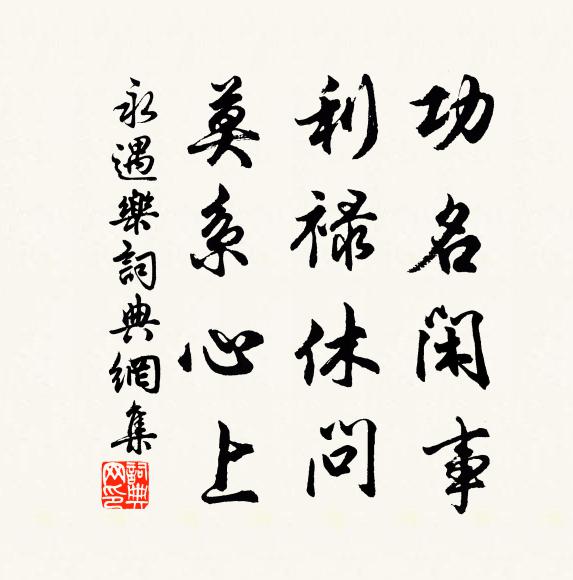 功名閑事
利祿休問
莫系心上
永遇樂詞典網集
詞典
网印